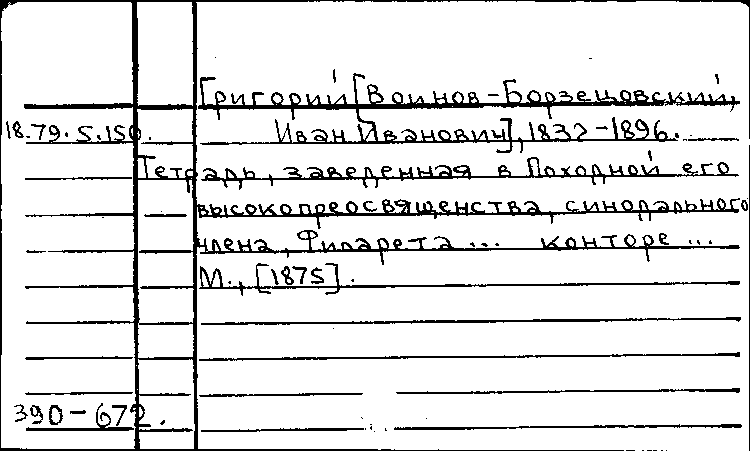 Григорий [Воинов-Борзецовский,
18.79.5.150. Иван Иванович], 1832-1896.
Тетрадь, заведенная в Походной его
высокопреосвященства, синодального
члена, Филарета ... конторе ...
М., [1875].
390-672.